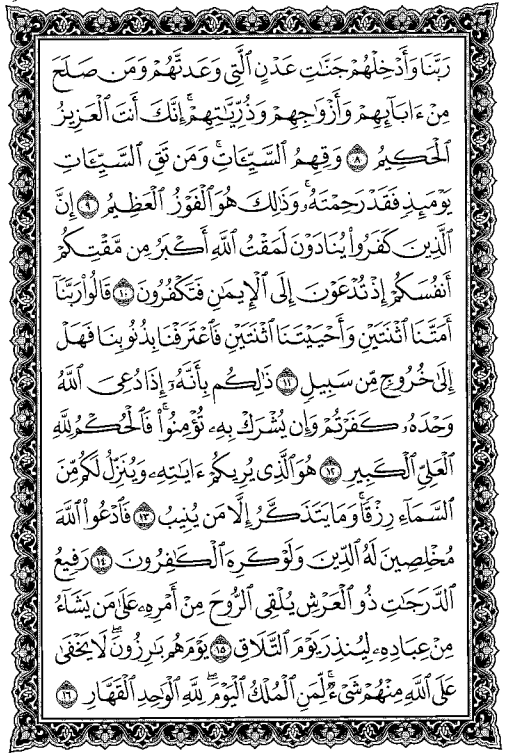 رَبَّنَا وَأَدْخِلْهُمْ جَنَّٰتِ عَدْنٍ ٱلَّتِى وَعَدتَّهُمْ وَمَن صَلَحَ
مِنْ ءَابَآئِهِمْ وَأَزْوَٰجِهِمْ وَذُرِّيَّٰتِهِمْ ۚ إِنَّكَ أَنتَ ٱلْعَزِيزُ
ٱلْحَكِيمُ ٨ وَقِهِمُ ٱلسَّيِّـَٔاتِ ۚ وَمَن تَقِ ٱلسَّيِّـَٔاتِ
يَوْمَئِذٍ فَقَدْ رَحِمْتَهُۥ ۚ وَذَٰلِكَ هُوَ ٱلْفَوْزُ ٱلْعَظِيمُ ٩ إِنَّ
ٱلَّذِينَ كَفَرُوا۟ يُنَادَوْنَ لَمَقْتُ ٱللَّهِ أَكْبَرُ مِن مَّقْتِكُمْ
أَنفُسَكُمْ إِذْ تُدْعَوْنَ إِلَى ٱلْإِيمَٰنِ فَتَكْفُرُونَ ١٠ قَالُوا۟ رَبَّنَآ
أَمَتَّنَا ٱثْنَتَيْنِ وَأَحْيَيْتَنَا ٱثْنَتَيْنِ فَٱعْتَرَفْنَا بِذُنُوبِنَا فَهَلْ
إِلَىٰ خُرُوجٍ مِّن سَبِيلٍ ١١ ذَٰلِكُم بِأَنَّهُۥٓ إِذَا دُعِىَ ٱللَّهُ
وَحْدَهُۥ كَفَرْتُمْ ۖ وَإِن يُشْرَكْ بِهِۦ تُؤْمِنُوا۟ ۚ فَٱلْحُكْمُ لِلَّهِ
ٱلْعَلِىِّ ٱلْكَبِيرِ ١٢ هُوَ ٱلَّذِى يُرِيكُمْ ءَايَٰتِهِۦ وَيُنَزِّلُ لَكُم مِّنَ
ٱلسَّمَآءِ رِزْقًا ۚ وَمَا يَتَذَكَّرُ إِلَّا مَن يُنِيبُ ١٣ فَٱدْعُوا۟ ٱللَّهَ
مُخْلِصِينَ لَهُ ٱلدِّينَ وَلَوْ كَرِهَ ٱلْكَٰفِرُونَ ١٤ رَفِيعُ
ٱلدَّرَجَٰتِ ذُو ٱلْعَرْشِ يُلْقِى ٱلرُّوحَ مِنْ أَمْرِهِۦ عَلَىٰ مَن يَشَآءُ
مِنْ عِبَادِهِۦ لِيُنذِرَ يَوْمَ ٱلتَّلَاقِ ١٥ يَوْمَ هُم بَٰرِزُونَ ۖ لَا يَخْفَىٰ
عَلَى ٱللَّهِ مِنْهُمْ شَىْءٌ ۚ لِّمَنِ ٱلْمُلْكُ ٱلْيَوْمَ ۖ لِلَّهِ ٱلْوَٰحِدِ ٱلْقَهَّارِ ١٦